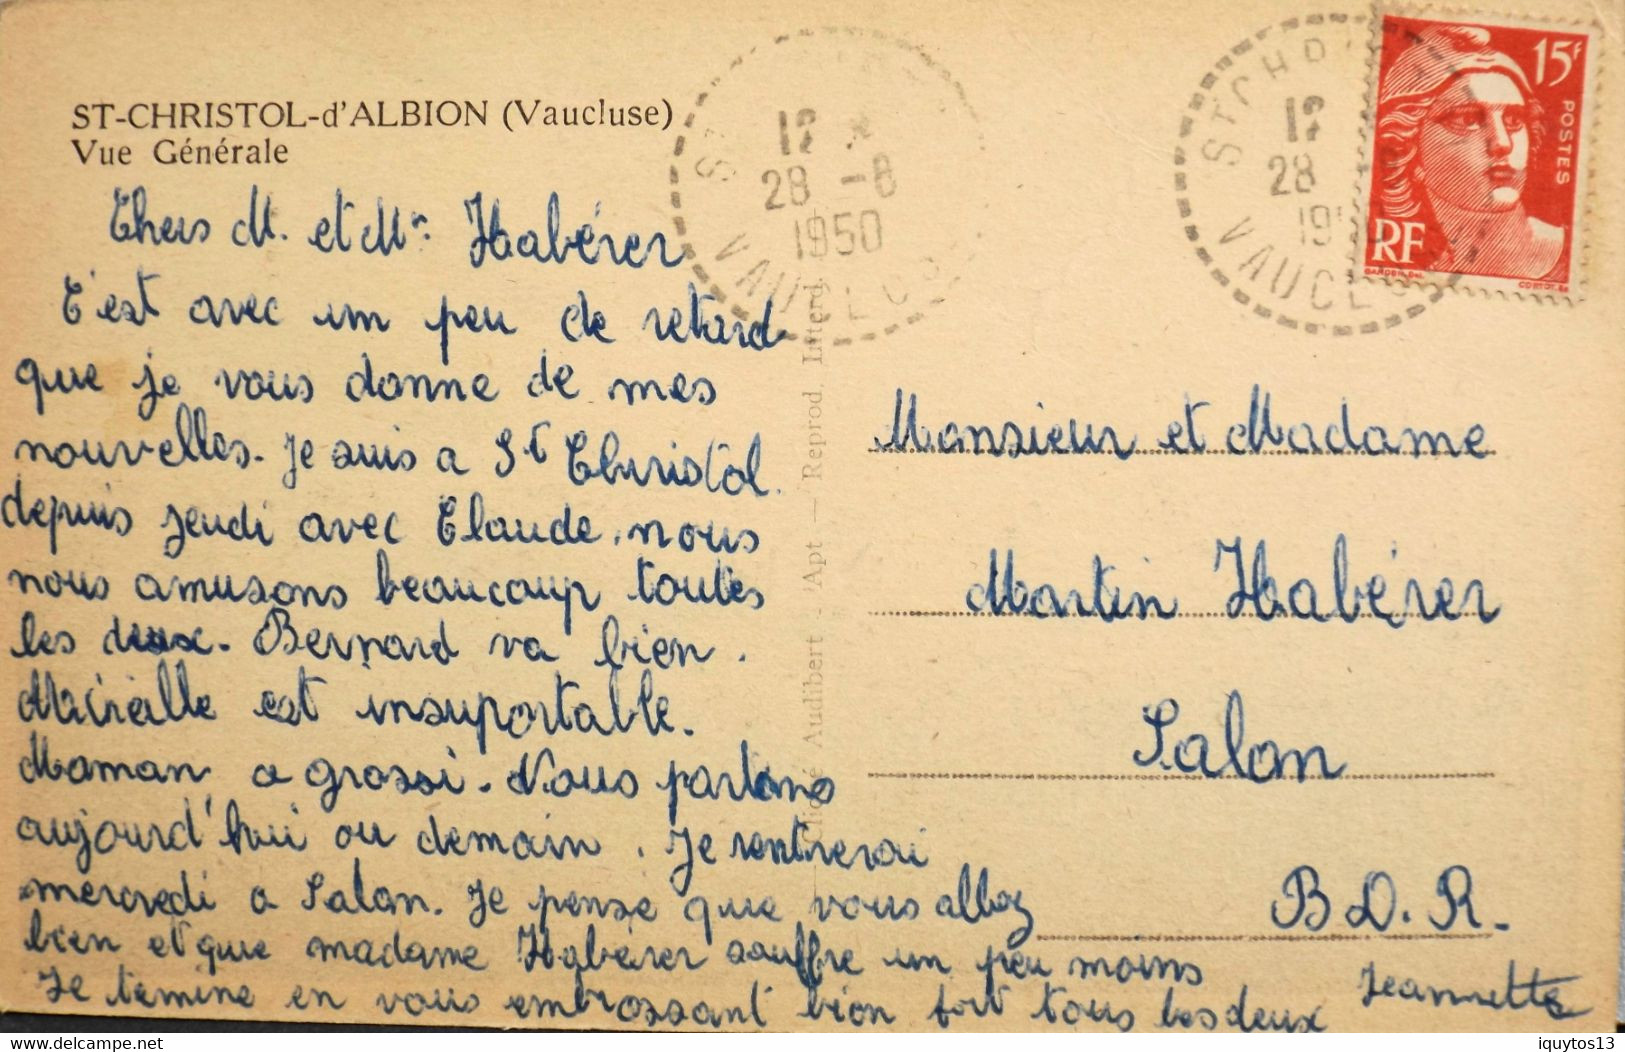 ST-CHRISTOL-d'ALBION (Vaucluse)
Vue Générale
12
28 -8
1950
VAUCLUSE
ST CHRI
12
28
19
VAUCLUSE
15F
POSTES
RF
GANDON. Del.
CORTOT. Sc
Chers M. et Mr Habérer
C'est avec un peu de retard
que je vous donne de mes
nouvelles. Je suis a St Christol.
depuis jeudi avec Claude. nous
nous amusons beaucoup toutes
les deux. Bernard va bien.
Mireille est insuportable.
Maman a grossi. Nous partons
aujourd'hui ou demain. Je rentrerai
mercredi a Salon. Je pense que vous allez
bien et que madame Habérer souffre un peu moins
Je termine en vous embrassant bien fort tous les deux
Jeannette
Cliché Audibert - Apt — Reprod. Interd.
Monsieur et Madame
Martin Habérer
Salon
B.D.R.
delcampe.net
iquytos13